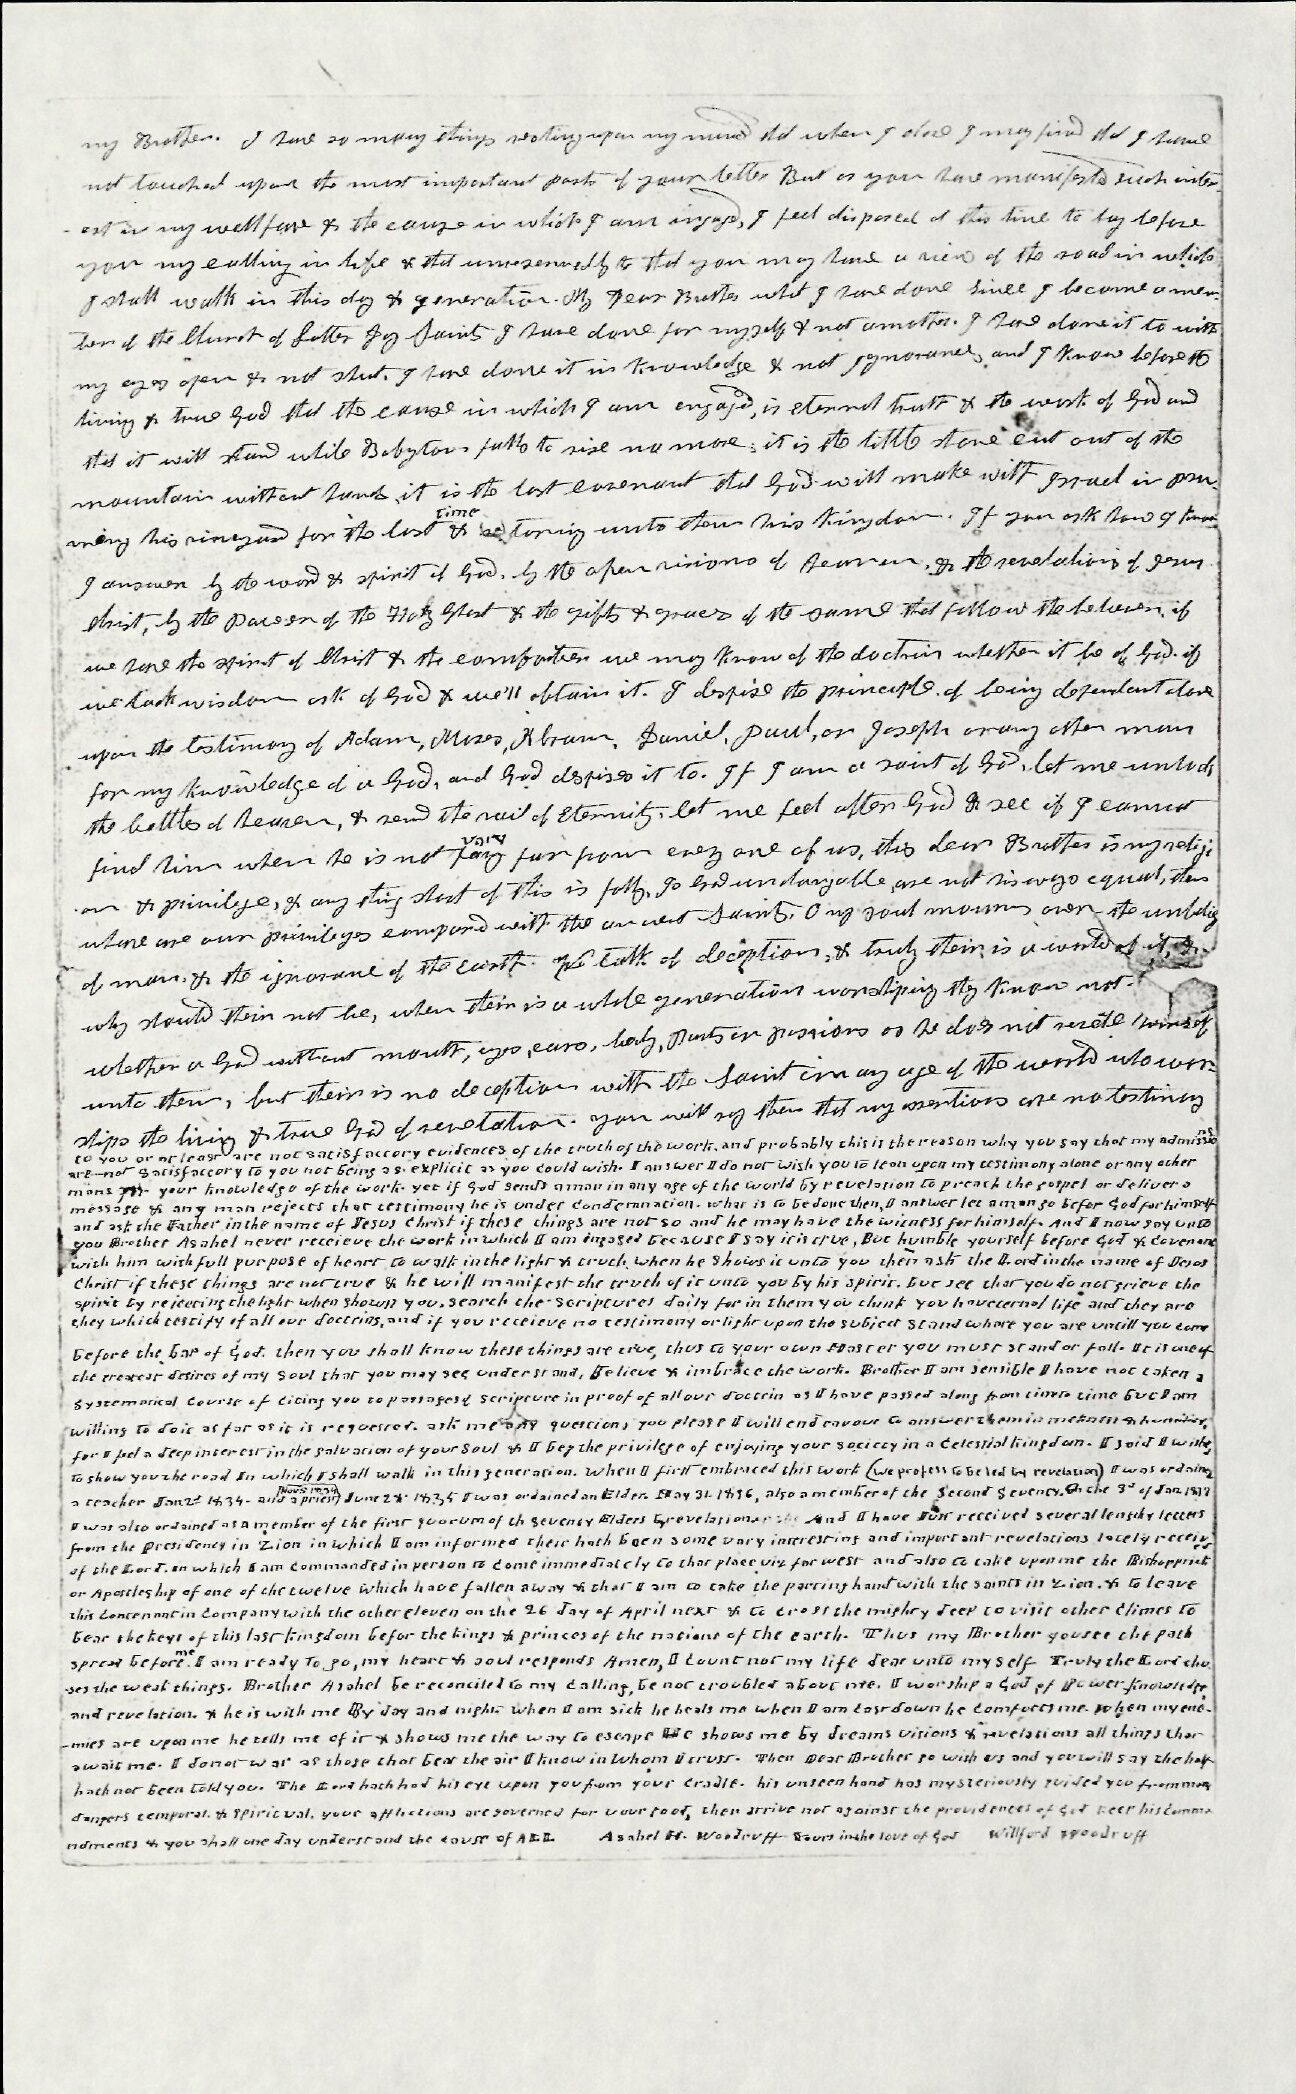 my Brother. I have so many things resting upon my mind that when I close I may find that I have
not touched upon the most important parts of your letter But as you have manifested such inter-
-est in my wellfare & the cause in which I am ingaged, I feel disposed at this time to lay before
you my calling in life & that unreservedly & that you may have a view of the road in which
I shall walk in this day & generation. My Dear Brother what I have done since I become a mem-
ber of the Church of Latter Day Saints I have done for myself & not another. I have done it to with
my eyes open & not shut. I have done it in knowledge & not ignorance, and I know before the
living & true God that the cause in which I am engaged, is eternal truth & the work of God and
that it will stand while Babylon falls to rise no more; it is the little stone cut out of the
mountain without hands, it is the last covenant that God will make with Israel in pru-
ning his vineyard for the last time & restoring unto them his Kingdom. If you ask how I know
I answer by the word & spirit of God. by the open visions of heaven, & the revelations of Jesus
Christ, by the Power of the Holy Ghost & the gifts & graces of the same that follow the believer. if
we have the spirit of Christ & the comforter we may know of the doctrin whether it be of God. if
we lack wisdom ask of God & we'll obtain it. I despise the principle of being dependant alone
upon the testimony of Adam, Moses, Abram, Daniel, Paul, or Joseph or any other man
for my knowledge of a God, and God despises it to. If I am a saint of God, let me unlock
the bottles of heaven, & rend the vail of Eternity. let me feel after God & see if I cannot
find him when he is not very far from every one of us, this dear Brother is my religi
on & privilege, & any thing short of this is folly. Is God unchangable, are not his ways equal, then
where are our privileges compared with the ancient Saints. O my soul mourns over the unbelief
of man, & the ignorance of the earth. We talk of deception, & truly their is a world of it, &
why should their not be, when their is a whole generation worshiping they know not
whether a God without mouth, eyes, ears, body, parts or passions as he does not reveal himself
unto them, but their is no deception with the Saint in any age of the world who wor-
ships the living & true God of revelation. You will say then that my assertions are no testimony
to you or at least are not satisfactory evidences of the truth of the work. and probably this is the reason why you say that my admissions
are not satisfactory to you not being as explicit as you could wish. I answer I do not wish you to lean upon my testimony alone or any other
mans for your knowledge of the work. yet if God sends a man in any age of the world by revelation to preach the gospel or deliver a
message & any man rejects that testimony he is under condemnation. what is to be done then, I answer let a man go befor God for himself
and ask the Father in the name of Jesus Christ if these things are not so and he may have the witness for himself. And I now say unto
you Brother Asahel never receieve the work in which I am ingaged because I say it is true, But humble yourself before God & Covenant
with him with full purpose of heart to walk in the light & truth. when he shows it unto you then ask the Lord in the name of Jesus
Christ if these things are not true & he will manifest the truth of it unto you by his spirit. but see that you do not grieve the
spirit by rejecting the light when shown you. search the scriptures daily for in them you think you have eternal life and they are
they which testify of all our doctrins, and if you receieve no testimony or light upon the subject stand where you are untill you come
before the bar of God. then you shall know these things are true, thus to your own Master you must stand or fall. It is one of
the greatest desires of my soul that you may see understand, believe & imbrace the work. Brother I am sensible I have not taken a
systematical course of citing you to passages of scripture in proof of all our doctrin as I have passed along from time to time but I am
willing to do it as far as it is requested. ask me any questions you please I will endeavour to answer them in meekness & humility,
for I feel a deep interest in the salvation of your soul & I beg the privilege of enjoying your society in a Celestial kingdom. I said I wished
to show you the road in which I shall walk in this generation. When I first embraced this work (we profess to be led by revelation) I was ordained
a teacher Jan 2d 1834. and a priest Nov 5 1834 June 28 1835 I was ordained an Elder. May 31 1836, also a member of the Second Seventy. On the 3d of Jan 1837
I was also ordained as a member of the first quorum of th Seventy Elders by revelation And I have Just received several lengthy letters
from the Presidency in Zion in which I am informed their hath been some vary interesting and important revelations lately received
of the Lord. in which I am commanded in person to come immediately to that place viz far west and also to take upon me the Bishopprick
or Apostleship of one of the twelve which have fallen away & that I am to take the parting hand with the saints in Zion. & to leave
this Continnant in company with the other eleven on the 26 day of April next & to cross the mighty deep to visit other climes to
bear the keys of this last kingdom befor the kings & princes of the nations of the earth. Thus my Brother you see the path
spread before me. I am ready to go, my heart & soul responds Amen, I count not my life dear unto myself Truly the Lord cho-
ses the weak things. Brother Asahel be reconciled to my calling, be not troubled about me. I worship a God of Power knowledge
and revelation. & he is with me By day and night. when I am sick he heals me when I am cast down he comforts me. When my ene-
-mies are upon me he tells me of it & shows me the way to escape He shows me by dreams visions & revelations all things that
await me. I do not war as those that beat the air I know in whom I trust. Then Dear Brother go with us and you will say the half
hath not been told you. The Lord hath had his eye upon you from your cradle. his unseen hand has mysteriously guided you from many
dangers temporal & spiritual. your afflictions are governed for your good, then strive not against the providences of God keep his comma-
ndments & you shall one day understand the cause of ALL Asahel H. Woodruff Yours in the love of God Willford Woodruff